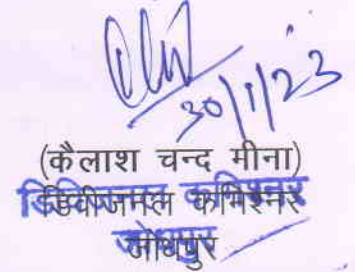 30/1/23
(कैलाश चन्द मीना)
डिवीजनल कमिश्नर
जोधपुर